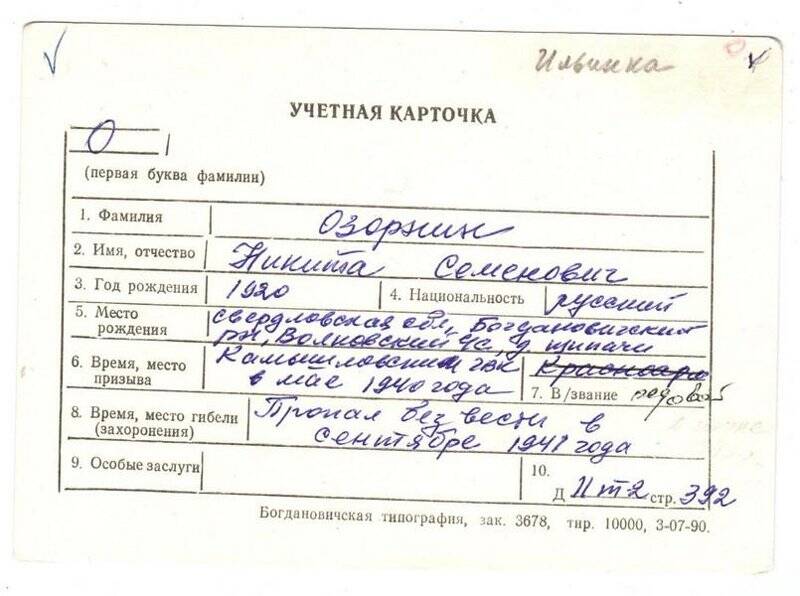 Ильинка
УЧЕТНАЯ КАРТОЧКА
О
(первая буква фамилии)
1. Фамилия Озорнин
2. Имя, отчество Никита Семенович
3. Год рождения 1920 4. Национальность русский
5. Место рождения свердловская обл, Богдановичский
рн, Волковский с/с, д. щипачи
6. Время, место призыва Камышловским гвк
в мае 1940 года
7. В/звание рядовой
8. Время, место гибели (захоронения) Пропал без вести в
сентябре 1941 года
9. Особые заслуги
10.
Д II т-2 стр. 392
Богдановичская типография, зак. 3678, тир. 10000, 3-07-90.